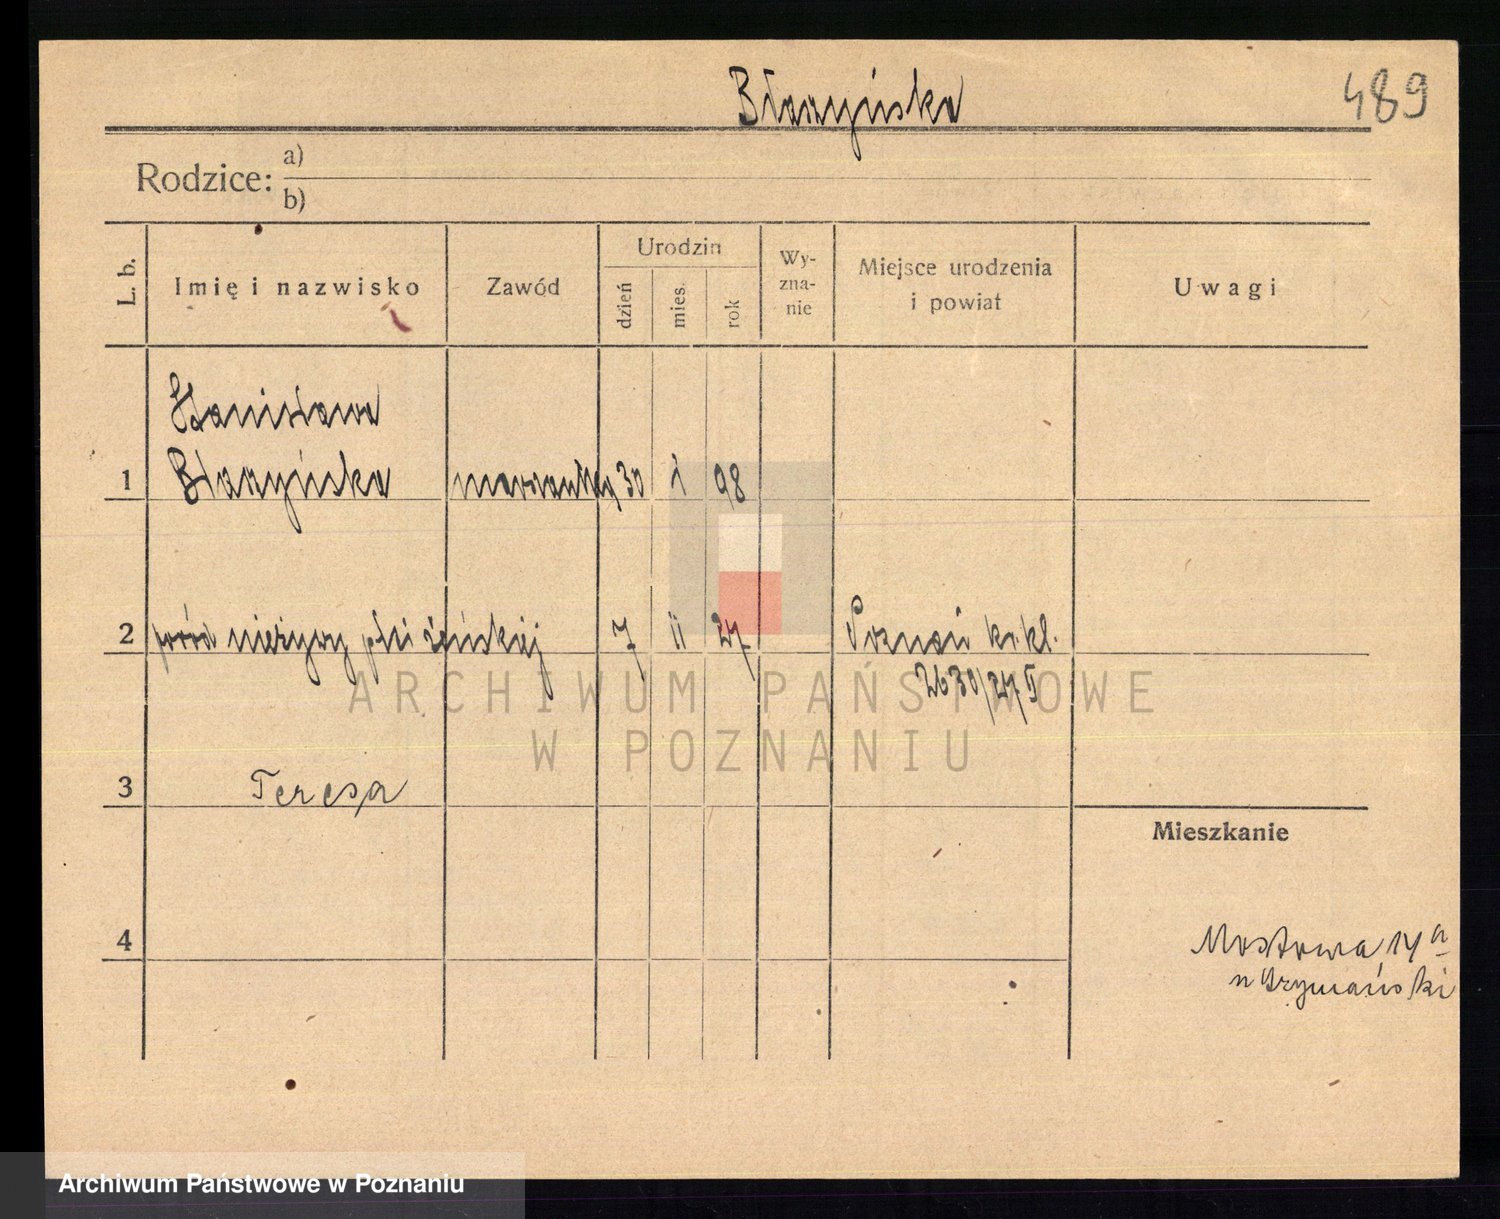 Błaryńska
489
Rodzice:
a)
b)
L. b.
Imię i nazwisko
Zawód
Urodzin
dzień
mies.
rok
Wy-
zna-
nie
Miejsce urodzenia
i powiat
Uwagi
Stanisława
1 Błaryńska 30 1 98
2 poród nieżywy płci żeńskiej 7 II 27 Poznań kr. kl.
2630/27 I
3 Teresa
Mieszkanie
4
Mostowa 14 a
u Szymański
ARCHIWUM PAŃSTWOWE
W POZNANIU
Archiwum Państwowe w Poznaniu